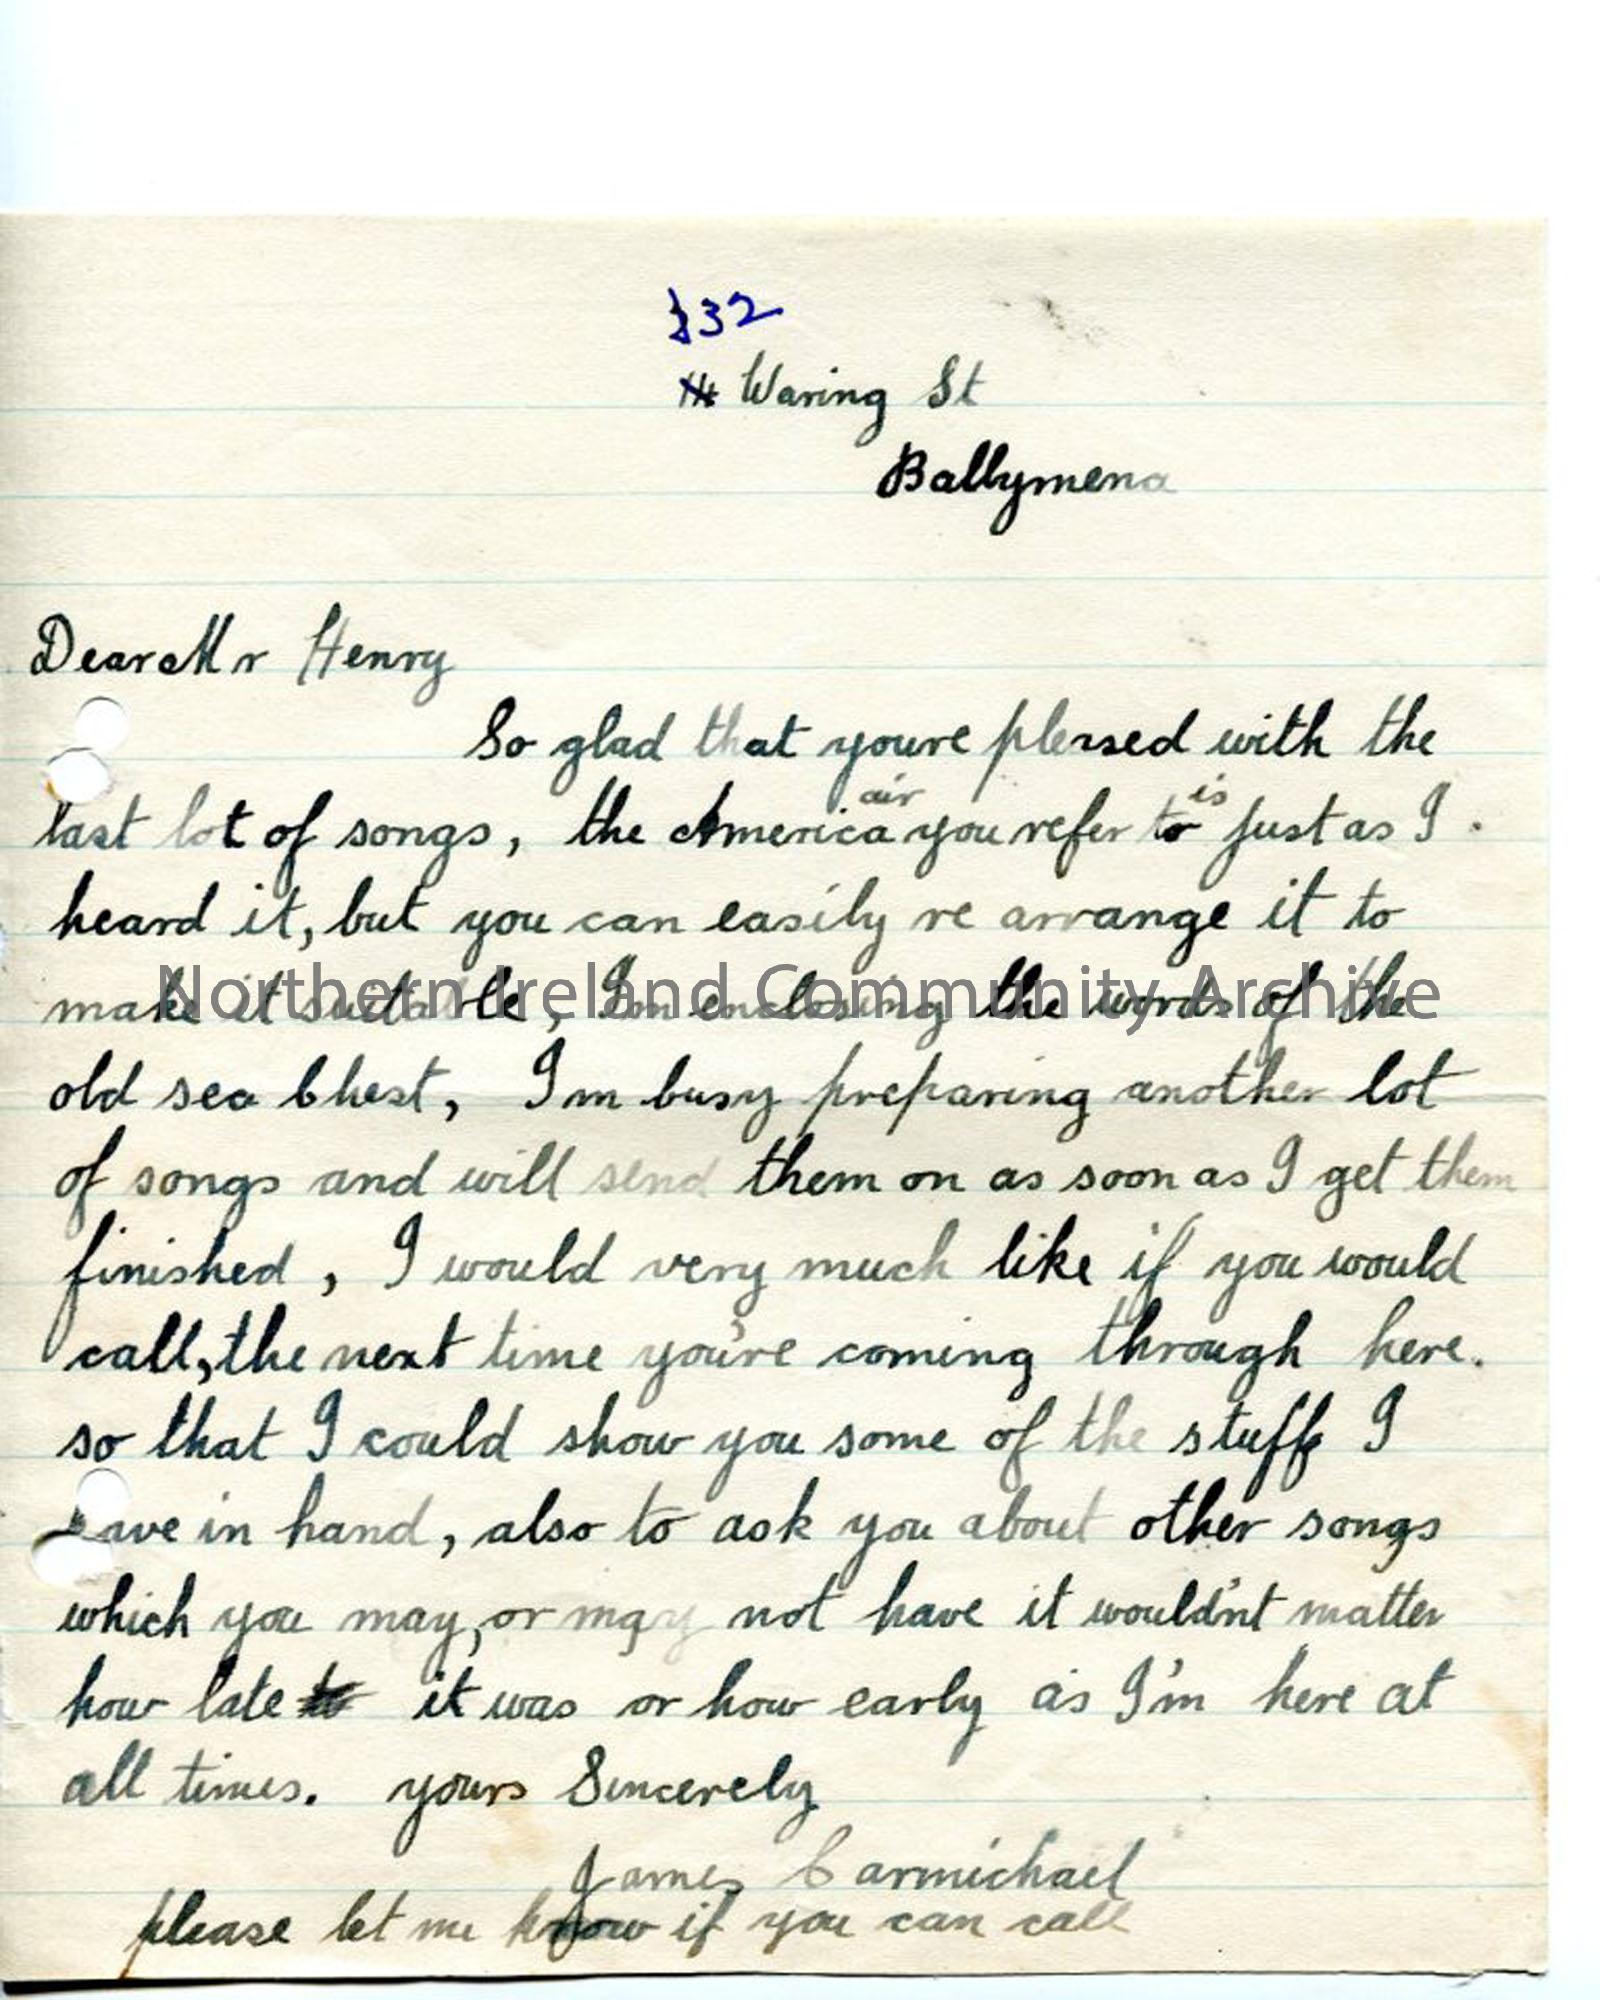 132
Waring St
Ballymena
Dear Mr Henry
So glad that youre plersed with the
last lot of songs, the America air you refer to is just as I
heard it, but you can easily re arrange it to
make it suitable, I'm enclosing the words of the
Northern Ireland Community Archive
old sea Chest, I'm busy preparing another lot
of songs and will send them on as soon as I get them
finished, I would very much like if you would
call, the next time you're coming through here.
so that I could show you some of the stuff I
have in hand, also to ask you about other songs
which you may, or may not have it wouldn't matter
how late it was or how early as I'm here at
all times. yours Sincerely
James Carmichael
please let me know if you can call